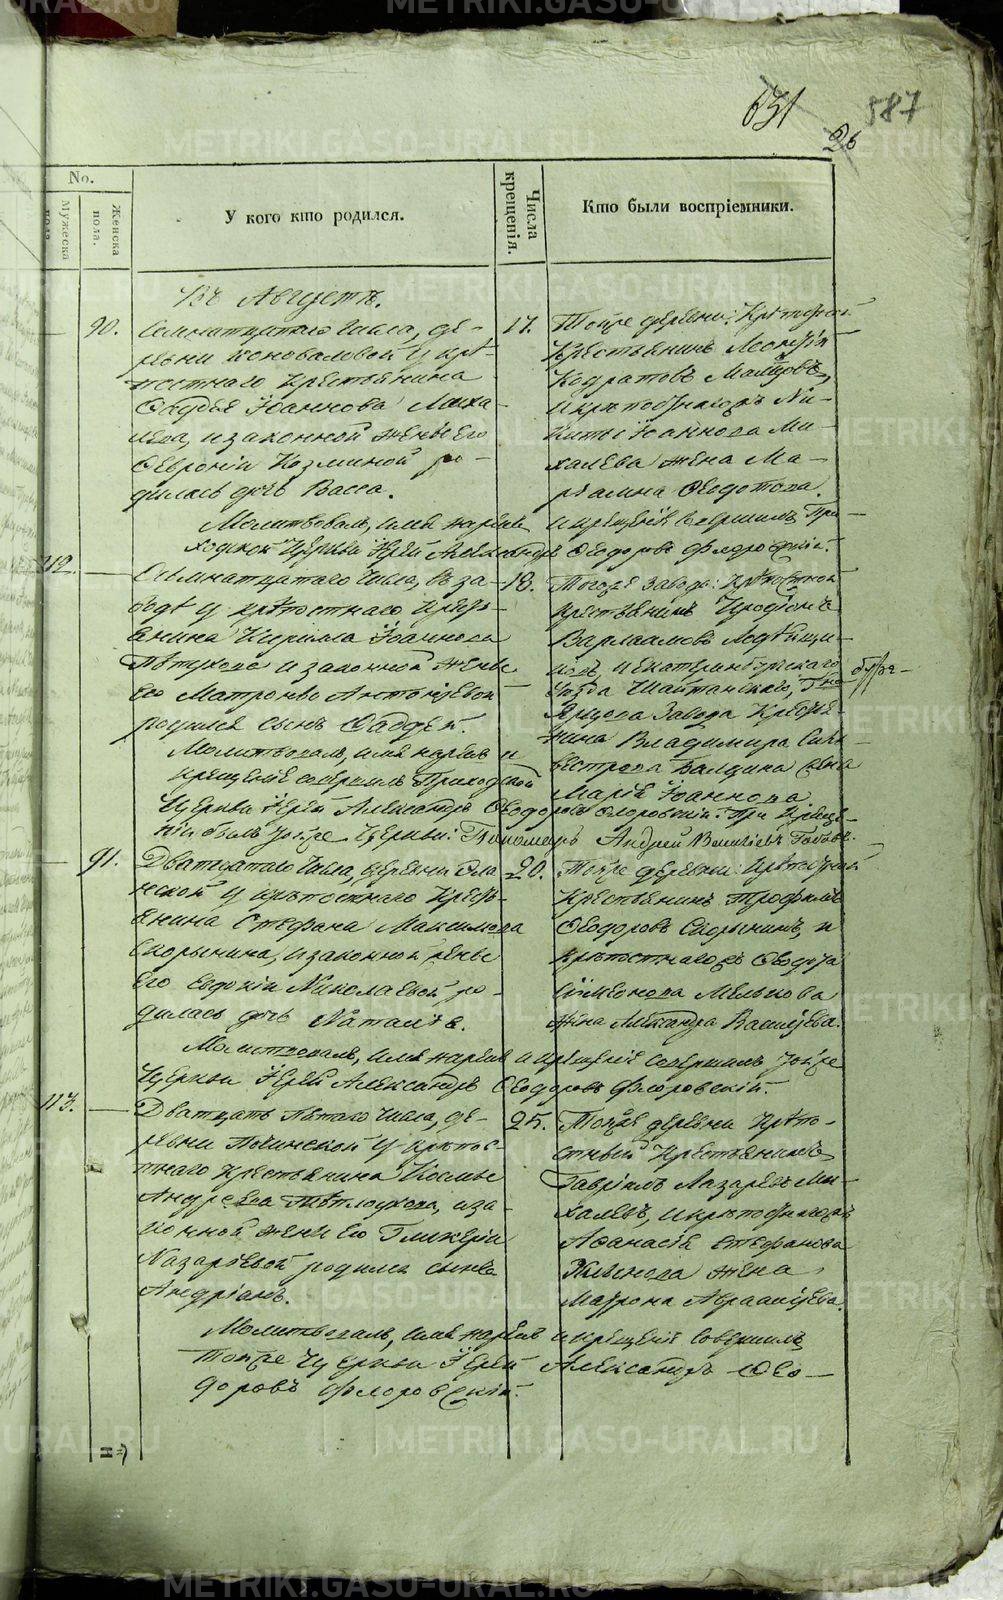 631
26
587
No.
Мужеска пола
Женска пола.
У кого кто родился.
Числа крещенія.
Кто были воспріемники.
Въ Августѣ.
90.
Семнатцатаго Числа, де-
ревни Коноваловой у крѣ-
постнаго Крестьянина
Фаддея Іоаннова Миха-
лева, и законной жены его
Февроніи Козминой ро-
дилась дочь Васса.
17.
Тойже деревни: Крѣпостной
Крестьянинъ Леонтій
Кодратовъ
и крѣпостнагожъ Ни-
киты Іоаннова Ми-
халева жена Ма-
ріамна Ѳеодотова.
Молитвовалъ, имя нарекъ и крещеніе совершилъ При-
ходской Церкви Іерей Александръ Ѳеодоровъ Флоровскій.
112.
Семнатцатаго Числа, въ за-
водѣ у крѣпостнаго Кресть-
янина Кирила Іоаннова
Пѣтухова и законной жены
его Матроны Антоніевой
родился сынъ Фаддей.
18.
Тогоже завода: крѣпостной
крестьянинъ Иродіонъ
Варлаамовъ
и Екатеринбургскаго
уѣзда Шайтанскаго,
завода Кресть-
янина Владимира Силь-
вестрова
Марія Іоаннова
Молитвовалъ, имя нарекъ и
крещеніе совершилъ Приходской
Церкви Іерей Александръ Ѳеодоровъ Флоровскій: При креще-
ніи былъ тойже Церкви: Пономарь Андрей
91.
Дватцатаго Числа, деревни
у крѣпостнаго Кресть-
янина Стефана Максимова
Скорынина, и законной жены
его Евдокіи Николаевой ро-
дилась дочь Наталія.
20.
Тойже деревни: крѣпостной
Крестьянинъ Трофимъ
Ѳеодоровъ Скорынинъ, и
крѣпостнагожъ
Симеонова Мелькова
жена Александра Васильева.
Молитвовалъ, имя нарекъ и крещеніе совершилъ тойже
Церкви Іерей Александръ Ѳеодоровъ Флоровскій.
113.
Дватцать пятаго Числа, де-
ревни Починской у крѣпос-
тнаго крестьянина Космы
Андреева Пѣтлоухова, и за-
конной жены его Гликеріи
Назаріевой родился сынъ
Андріанъ.
25.
Тойже деревни крѣпо-
стный Крестьянинъ
Гавріилъ Лазаревъ Ми-
халевъ, и крѣпостнагожъ
Аѳанасія Стефанова
жена
Матрона Авраамиева.
Молитвовалъ, имя нарекъ и крещеніе совершилъ
тойже Церкви Іерей Александръ Ѳео-
доровъ Флоровскій.
METRIKI.GASO-URAL.RU